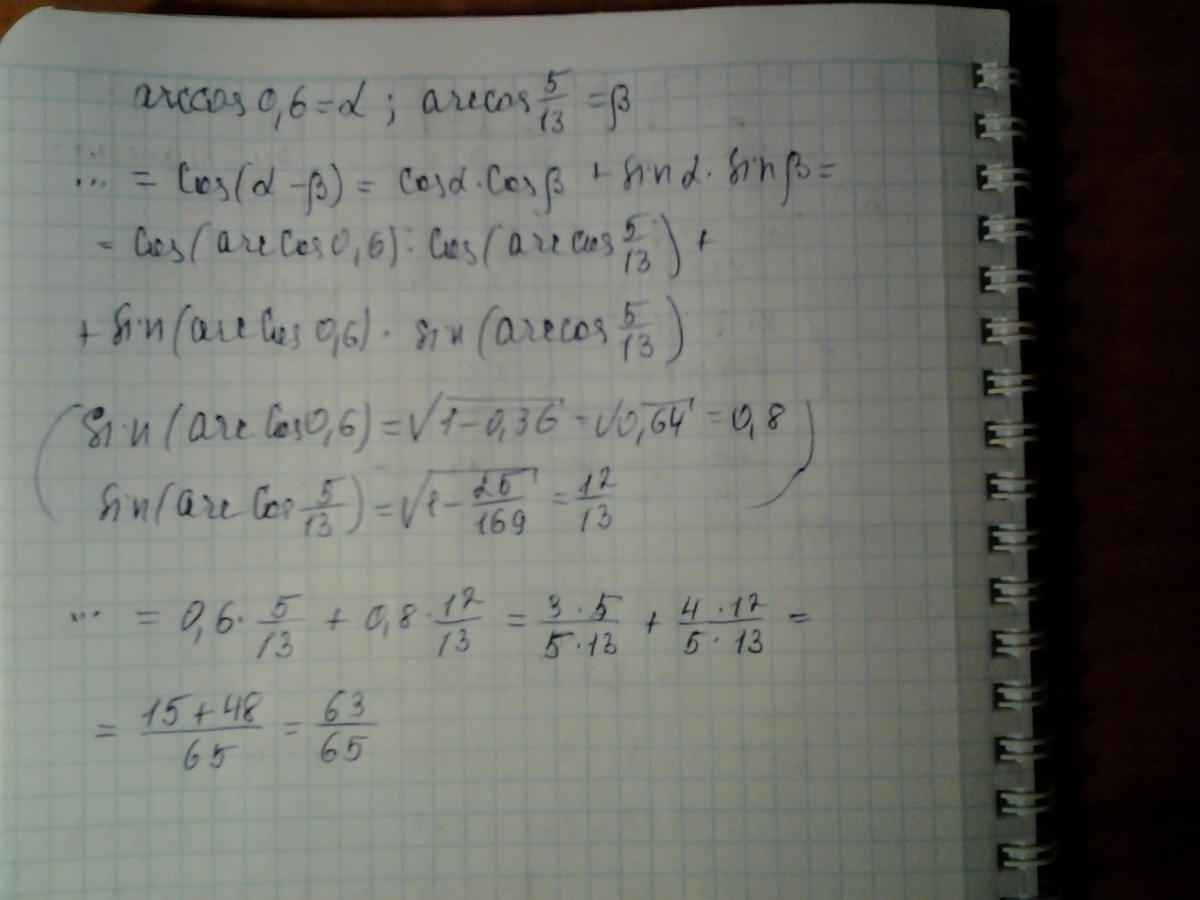 arccos 0,6 = α ; arccos 5/13 = β
... = Cos(α - β) = Cosα · Cosβ + Sin α · Sin β =
= Cos(arcCos 0,6) · Cos(arc cos 5/13) +
+ Sin(arc Cos 0,6) · sin(arccos 5/13)
(Sin(arc Cos 0,6) = √1-0,36 = √0,64 = 0,8
Sin(arc Cos 5/13) = √1 - 25/169 = 12/13)
... = 0,6 · 5/13 + 0,8 · 12/13 = 3 · 5/5 · 13 + 4 · 12/5 · 13 =
= 15+48/65 = 63/65